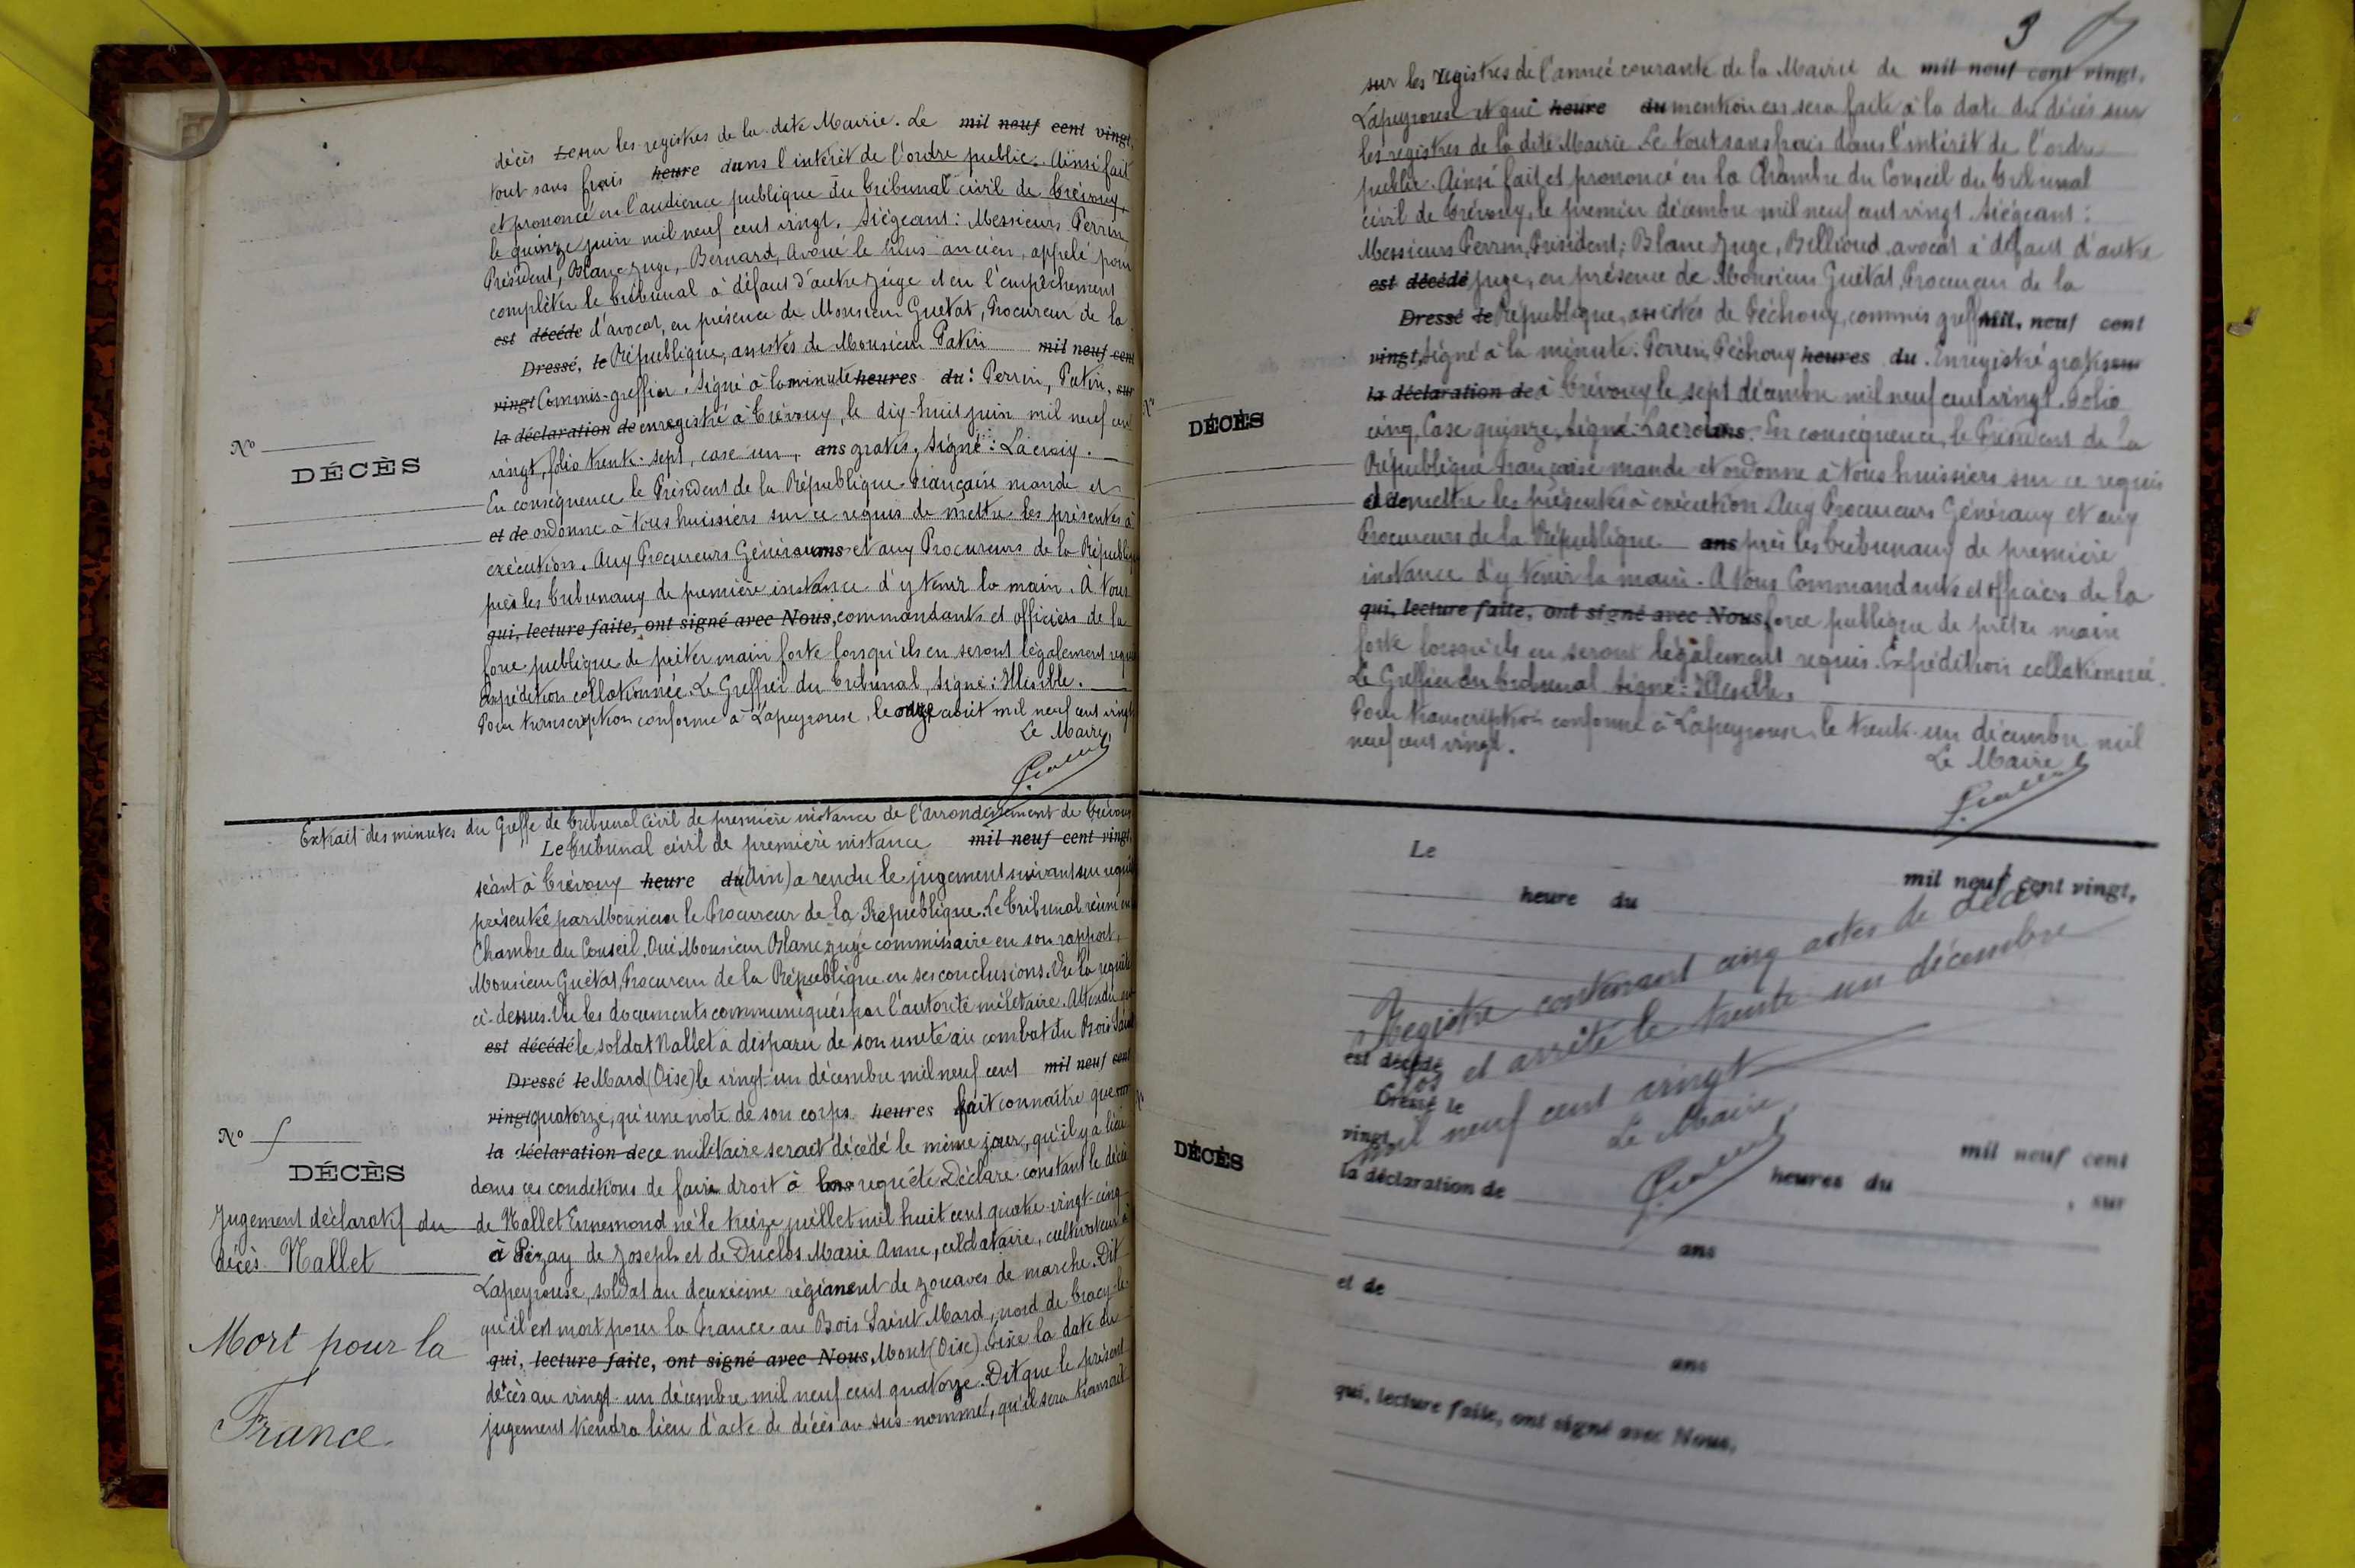 décès sur les registres de la dite Mairie. Le mil neuf cent vingt,
tout sans frais heure dans l'intérêt de l'ordre public. Ainsi fait
et prononcé en l'audience publique du tribunal civil de Trévoux,
le quinze juin mil neuf cent vingt. Siégeant : Messieurs Perrin,
Président, Blanc Juge, Bernard, Avoué le plus ancien, appelé pour
compléter le tribunal à défaut d'autre Juge et en l'empêchement
est décédé d'avocat, en présence de Monsieur Guétat, Procureur de la
Dressé, le République, assistés de Monsieur Patin mil neuf cent
vingt Commis-greffier. Signé à la minute heures du : Perrin, Patin, sur
la déclaration de enregistré à Trévoux, le dix-huit juin mil neuf cent
vingt, folio trente-sept, case un, ans gratis, Signé : Lacroix.
En conséquence le Président de la République Française mande et
et de ordonne à tous huissiers sur ce requis de mettre les présentes à
exécution. Aux Procureurs Généraux ans et aux Procureurs de la République
près les tribunaux de première instance d'y tenir la main. À tous
qui, lecture faite, ont signé avec Nous, commandants et officiers de la
force publique de prêter main forte lorsqu'ils en seront légalement requis
Expédition collationnée. Le Greffier du tribunal, Signé : Illisible.
Pour transcription conforme à Lapeyrouse, le onze août mil neuf cent vingt
Le Maire,
N°
DÉCÈS
Extrait des minutes du Greffe de tribunal Civil de première instance de l'arrondissement de Trévoux
Le tribunal civil de première instance mil neuf cent vingt,
séant à Trévoux heure du (Ain) a rendu le jugement suivant sur requête
présentée par Monsieur le Procureur de la République. Le Tribunal réuni en
Chambre du Conseil. Ouï Monsieur Blanc Juge commissaire en son rapport,
Monsieur Guétat, Procureur de la République en ses conclusions. Vu la requête
ci-dessus. Vu les documents communiqués par l'autorité militaire. Attendu que
est décédé le soldat Nallet a disparu de son unité au combat du Bois Saint
Dressé le Mard (Oise) le vingt-un décembre mil neuf cent mil neuf cent
vingt quatorze, qu'une note de son corps heures fait connaître que sur
la déclaration de ce militaire serait décédé le même jour, qu'il y a lieu
dans ces conditions de faire droit à la ans requête. Déclare constant le décès
de Nallet Ennemond né le treize juillet mil huit cent quatre-vingt-cinq
à Pizay de Joseph et de Duclos Marie Anne, célibataire, cultivateur à
Lapeyrouse, soldat au deuxième régiment de zouaves de marche. Dit
qu'il est mort pour la France au Bois Saint Mard, nord de Tracy-le-
qui, lecture faite, ont signé avec Nous, Mont (Oise). Fixe la date du
décès au vingt-un décembre mil neuf cent quatorze. Dit que le présent
jugement tiendra lieu d'acte de décès au sus-nommé, qu'il sera transcrit
N° 5
DÉCÈS
Jugement déclaratif du
décès Nallet
Mort pour la
France.
3
sur les registres de l'année courante de la Mairie de mil neuf cent vingt,
Lapeyrouse et que heure du mention en sera faite à la date du décès sur
les registres de la dite Mairie. Le tout sans frais dans l'intérêt de l'ordre
public. Ainsi fait et prononcé en la Chambre du Conseil du tribunal
civil de Trévoux, le premier décembre mil neuf cent vingt. Siégeant :
Messieurs Perrin, Président; Blanc Juge, Billioud, avocat à défaut d'autre
est décédé juge, en présence de Monsieur Guétat, Procureur de la
Dressé le République, assistés de Péchoux, commis greffier mil neuf cent
vingt, Signé à la minute : Perrin, Péchoux heures du. Enregistré gratis sur
la déclaration de à Trévoux le sept décembre mil neuf cent vingt. Folio
cinq, Case quinze, Signé : Lacroix ans. En conséquence, le Président de la
République Française mande et ordonne à tous huissiers sur ce requis
et de de mettre les présentes à exécution. Aux Procureurs Généraux et aux
Procureurs de la République ans près les tribunaux de première
instance d'y tenir la main. A tous Commandants et officiers de la
qui, lecture faite, ont signé avec Nous, force publique de prêter main
forte lorsqu'ils en seront légalement requis. Expédition collationnée.
Le Greffier du tribunal Signé : Illisible.
Pour transcription conforme à Lapeyrouse, le trente-un décembre mil
neuf cent vingt.
Le Maire
DÉCÈS
Le mil neuf cent vingt,
heure du
Registre contenant cinq actes de décès
clos et arrêté le trente-un décembre
mil neuf cent vingt
Le Maire,
est décédé
Dressé le mil neuf cent
vingt, heures du , sur
la déclaration de
ans
et de
ans
qui, lecture faite, ont signé avec Nous,
DÉCÈS